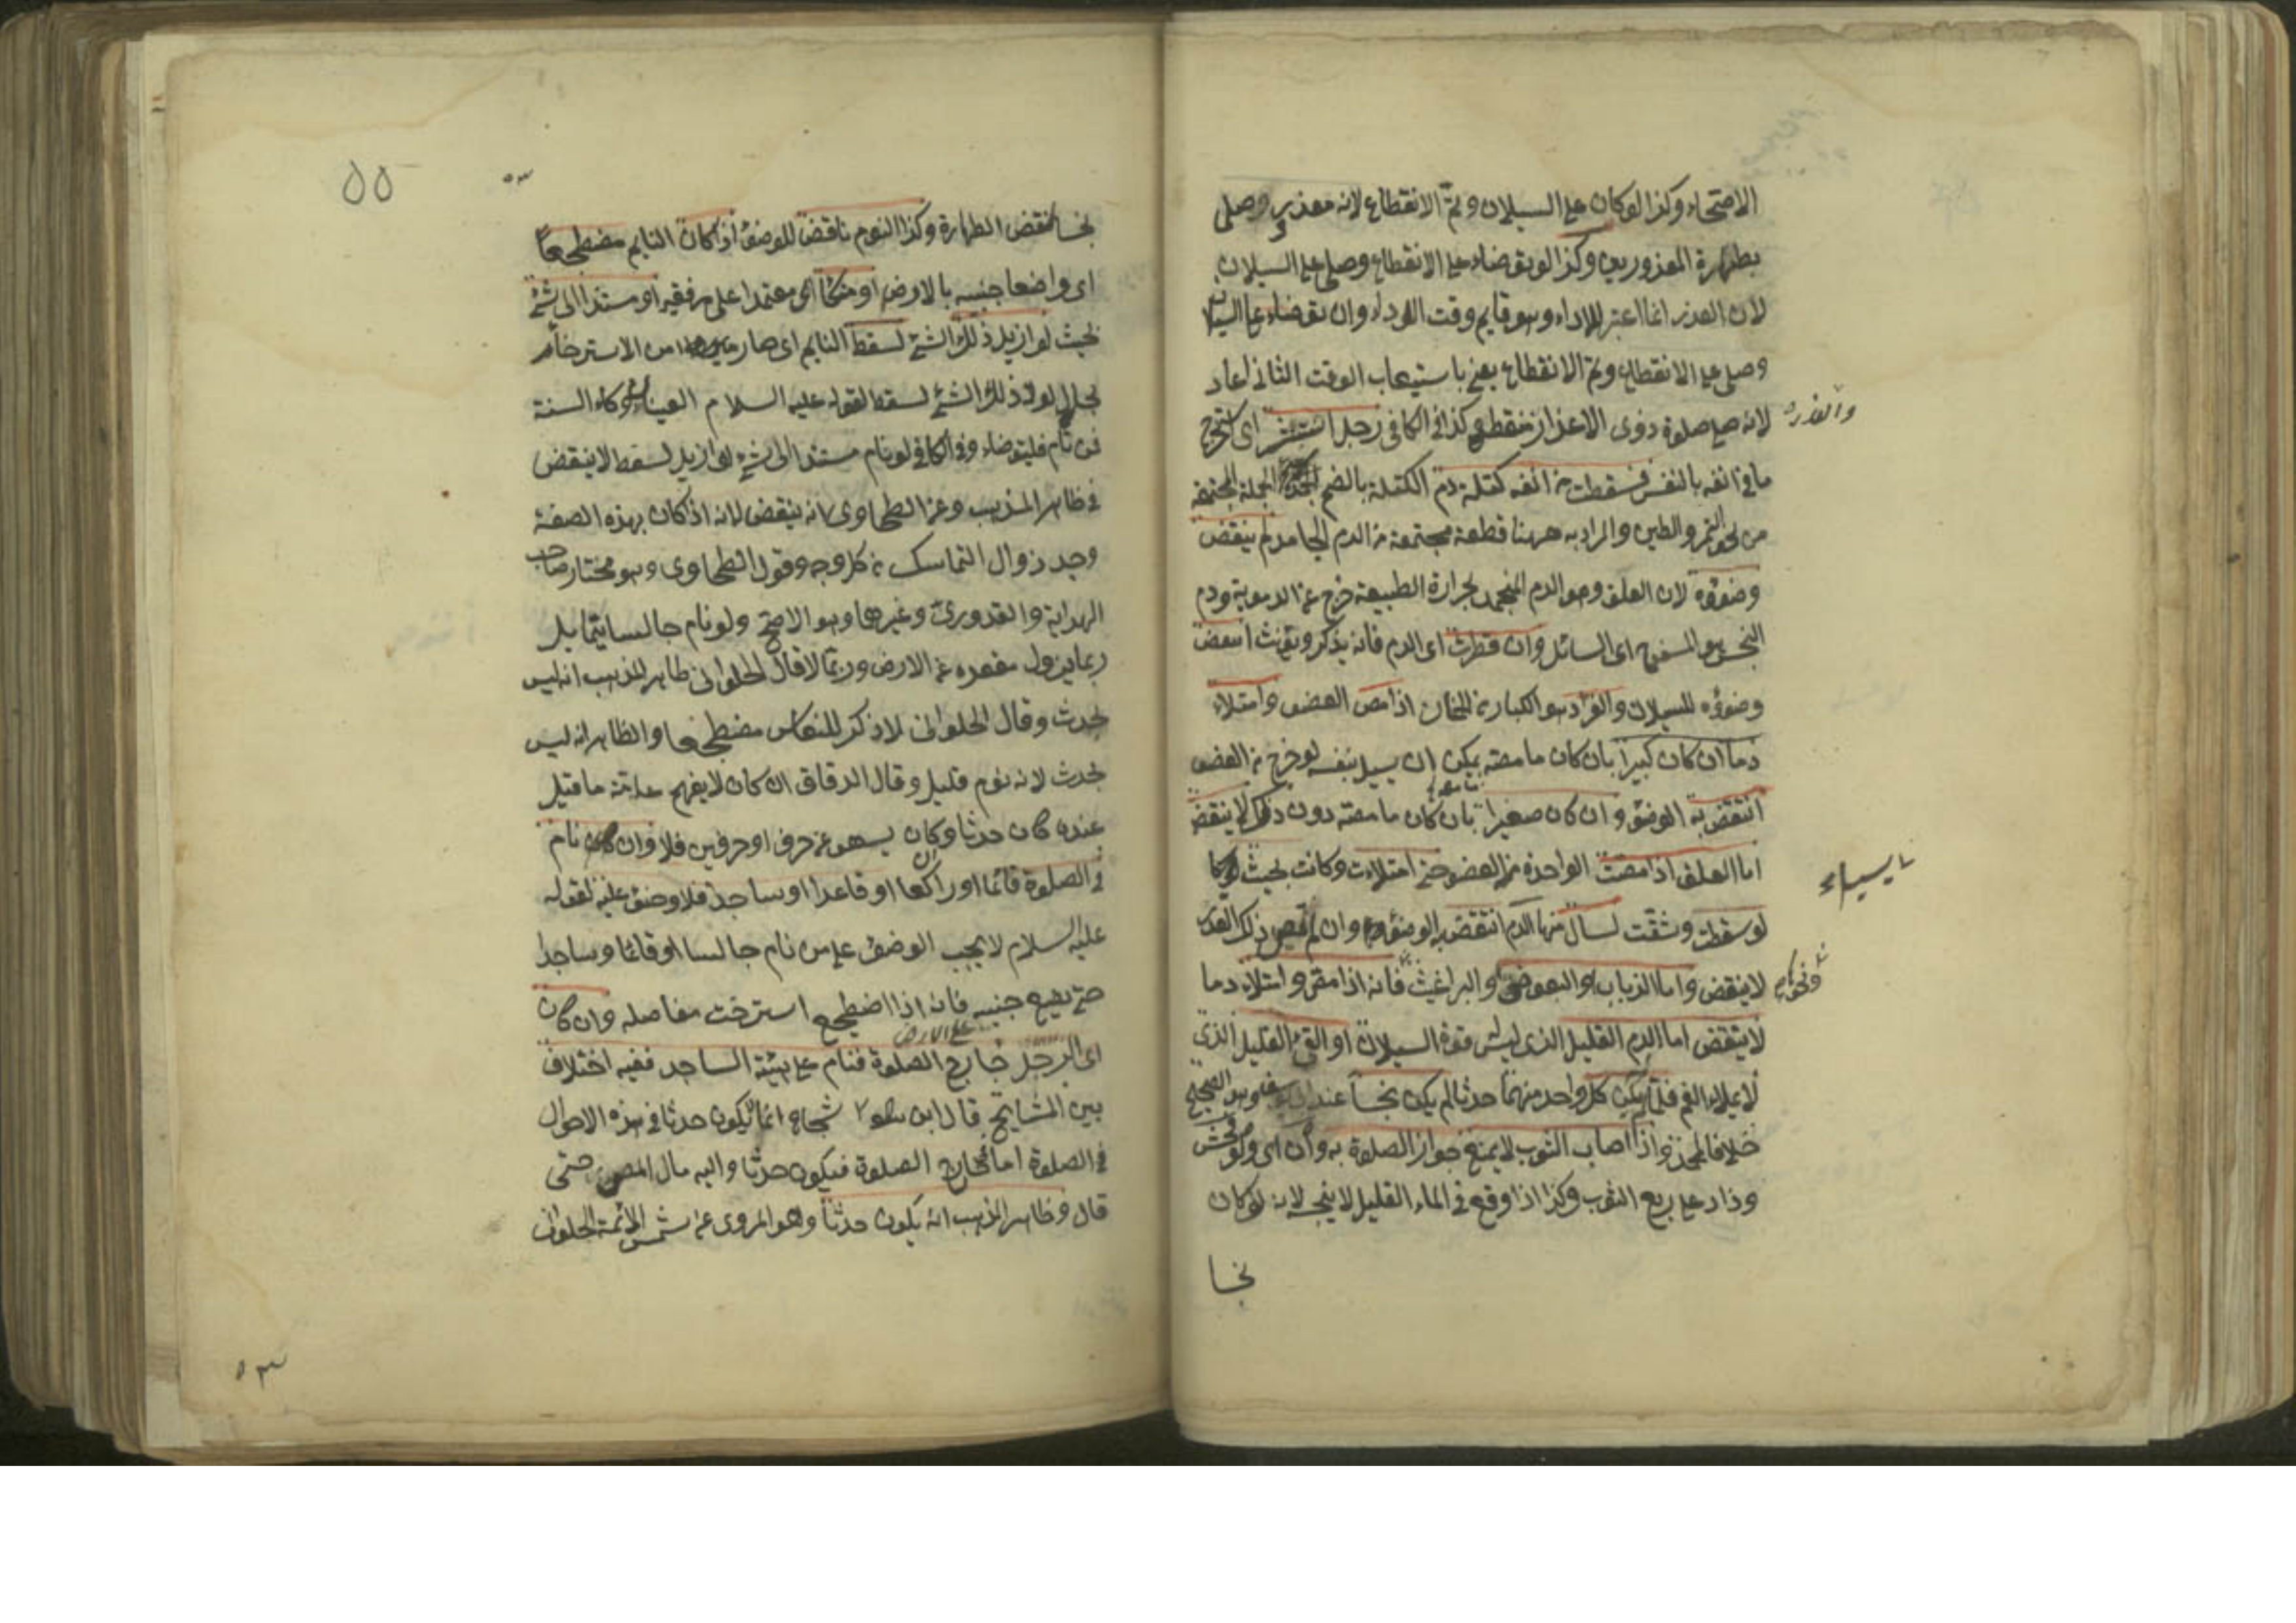 الاصحاء وكذا لو كان على السيلان وتم الانقطاع لانه معذور وصلى
بطهارة المعذورين وكذا لو توضاء على الانقطاع وصلى على السيلان
لان العذر انما اعتبر للاداء وهو قايم وقت الاداء وان توضاء على السيلان
وصلى على الانقطاع وتم الانقطاع يعنى باستيعاب الوقت الثانى اعاد
لانه صلى صلوة ذوى الاعذار منقطع كذا فى الكافى رجل استنثر اى استخرج
والعذر
ما فى انفه بالنفس فسقطت من انفه كتلة دم الكتلة بالضم الجملة المجتمعة
من نحو التمر والطين والمراد به ههنا قطعة مجتمعة من الدم الجامد لم ينقض
وضوؤه لان العلق وهو الدم المنجمد بحرارة الطبيعة خرج عن الدموية ودم
النجس هو المسفوح اى السائل وان قطرت اى الدم فانه يذكر ويؤنث انتقض
وضوؤه للسيلان والقراد هو الكبار من الحمنان اذا مص العضو وامتلاء
دما ان كان كبيرا بان كان ما مصه يمكن ان يسيل بنفسه لو خرج من العضو
انتقض به الوضوء وان كان صغيرا بان كان ما مصه دون ذلك لا ينقض
اما العلق اذا مصت الواحدة من العضو حتى امتلاءت وكانت بحيث
لو سقطت وشقت لسال منها الدم انتقض به الوضوء وان لم تمص ذلك القدر
لا ينقض واما الذباب والبعوض والبراغيث فانه اذا مص وامتلاء دما
ونحوها
لا ينقض اما الدم القليل الذى ليس قوة السيلان او القئ القليل الذى
لا يملاء الفم فلما لم يكن كل واحد منهما حدثا لم يكن نجسا عند ابى يوسف وهو الصحيح
خلافا لمحمد واذا اصاب الثوب لا يمنع جواز الصلوة به وان اى ولو فحش
وزاد على ربع الثوب وكذا اذا وقع فى الماء القليل لا ينجسه لانه لو كان
نجسا
٥٥
٥٣
نجسا لنقض الطهارة وكذا النوم ناقض للوضوء اذا كان النايم مضطجعا
اى واضعا جنبيه بالارض او متكئا اى معتمدا على مرفقيه او مستندا الى شئ
بحيث لو ازيل ذلك الشئ لسقط النايم اى صار من الاسترخاء
بحال لولا ذلك الشئ لسقط لقوله عليه السلام العينان وكاء السته
فمن نام فليتوضاء وفى الكافى لو نام مستندا الى شئ لو ازيل لسقط لا ينقض
فى ظاهر المذهب وعن الطحاوى انه ينقض لانه اذا كان بهذه الصفة
وجد زوال التماسك من كل وجه وقول الطحاوى وهو مختار صاحب
الهداية والقدورى وغيرهما وهو الاصح ولو نام جالسا يتمايل
ربما يزول مقعده عن الارض وربما لا قال الحلوانى ظاهر المذهب انه ليس
بحدث وقال الحلوانى لا ذكر للنعاس مضطجعا والظاهر انه ليس
بحدث لانه نوم قليل وقال الدقاق ان كان لا يفهم عامة ما قيل
عنده كان حدثا وان كان يسهو عن حرف او حرفين فلا وان نام
فى الصلوة قائما او راكعا او قاعدا او ساجدا فلا وضوء عليه لقوله
عليه السلام لا يجب الوضوء على من نام جالسا او قائما وساجدا
حتى يضع جنبيه فانه اذا اضطجع استرخت مفاصله وان كان
على الارض
اى الرجل خارج الصلوة فنام على هيئة الساجد ففيه اختلاف
بين المشايخ قال ابن شجاع انما لا يكون حدثا فى هذه الاحوال
فى الصلوة اما خارج الصلوة فيكون حدثا واليه مال المصنف حتى
قال وظاهر المذهب انه يكون حدثا وهو المروى عن شمس الائمة الحلوانى
٥٣